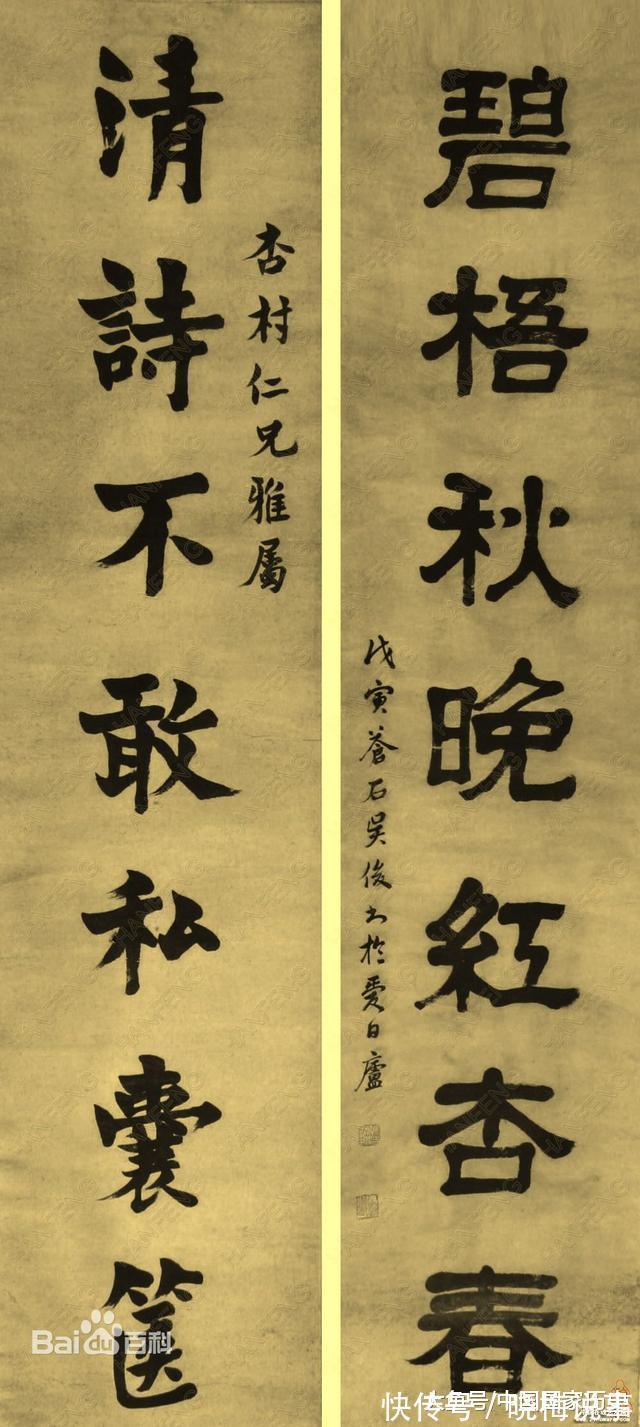 碧梧秋晚紅杏春
戊寅蒼石吳俊書於愛日廬
杏村仁兄雅屬
清詩不敢私囊篋
Bai du 百科
快传号 /